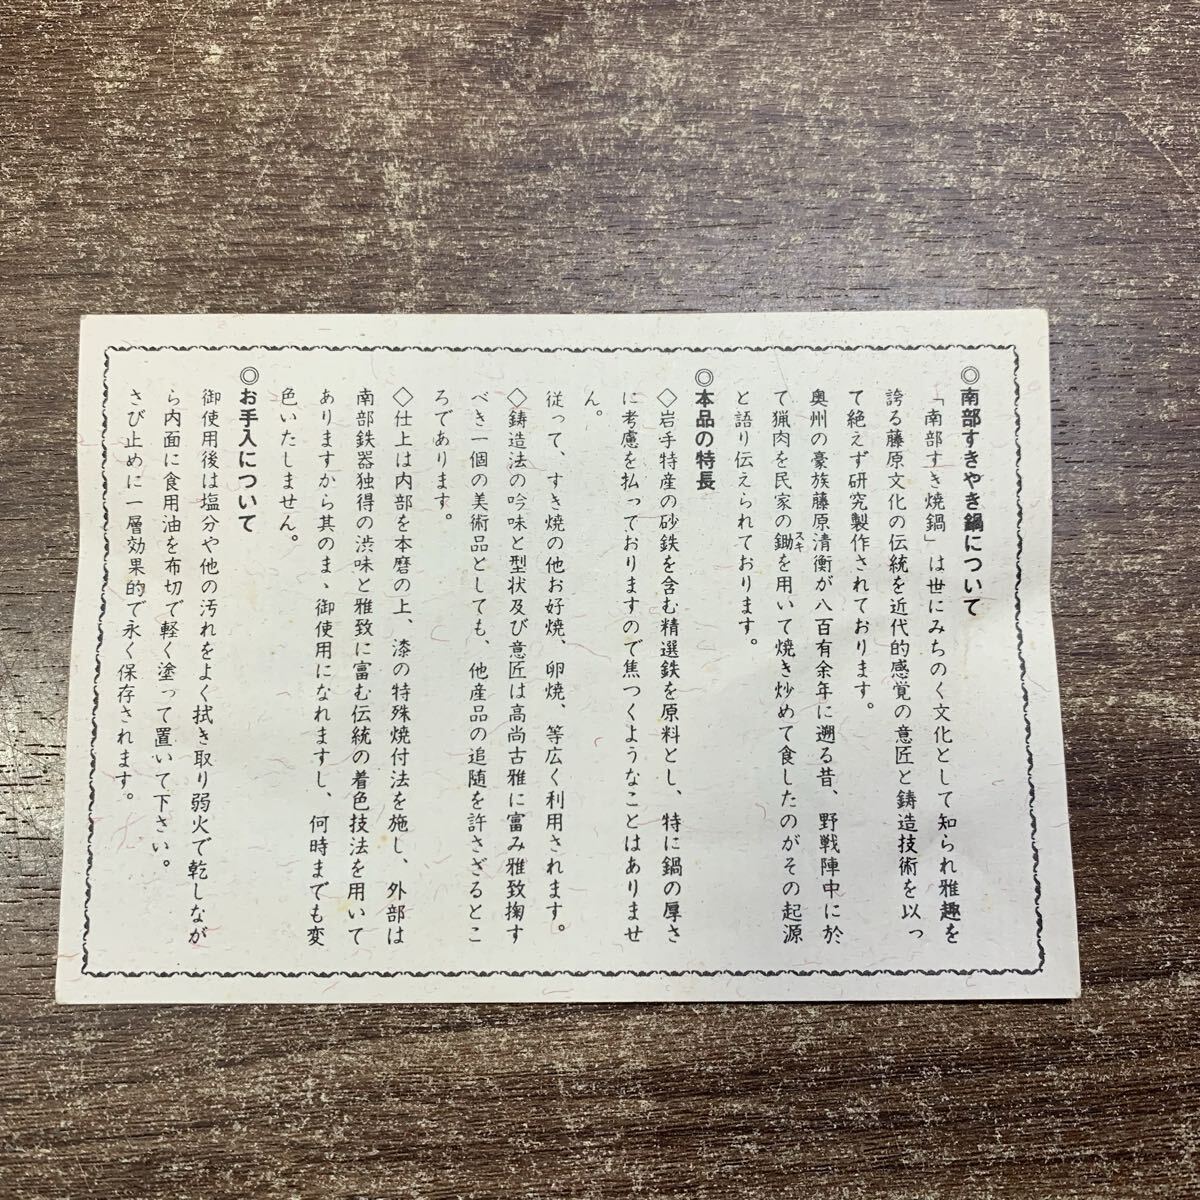 ◎南部すきやき鍋について
「南部すき焼鍋」は世にみちのく文化として知られ雅趣を
誇る藤原文化の伝統を近代的感覚の意匠と鋳造技術を以っ
て絶えず研究製作されております。
奥州の豪族藤原清衡が八百有余年に遡る昔、野戦陣中に於
て猟肉を民家の鋤を用いて焼き炒めて食したのがその起源
スキ
と語り伝えられております。
◎本品の特長
◇岩手特産の砂鉄を含む精選鉄を原料とし、特に鍋の厚さ
に考慮を払っておりますので焦つくようなことはありませ
ん。
従って、すき焼の他お好焼、卵焼、等広く利用されます。
◇鋳造法の吟味と型状及び意匠は高尚古雅に富み雅致掬す
べき一個の美術品としても、他産品の追随を許さざるとこ
ろであります。
◇仕上は内部を本磨の上、漆の特殊焼付法を施し、外部は
南部鉄器独得の渋味と雅致に富む伝統の着色技法を用いて
ありますから其のまゝ御使用になれますし、何時までも変
色いたしません。
◎お手入について
御使用後は塩分や他の汚れをよく拭き取り弱火で乾しなが
ら内面に食用油を布切で軽く塗って置いて下さい。
さび止めに一層効果的で永く保存されます。